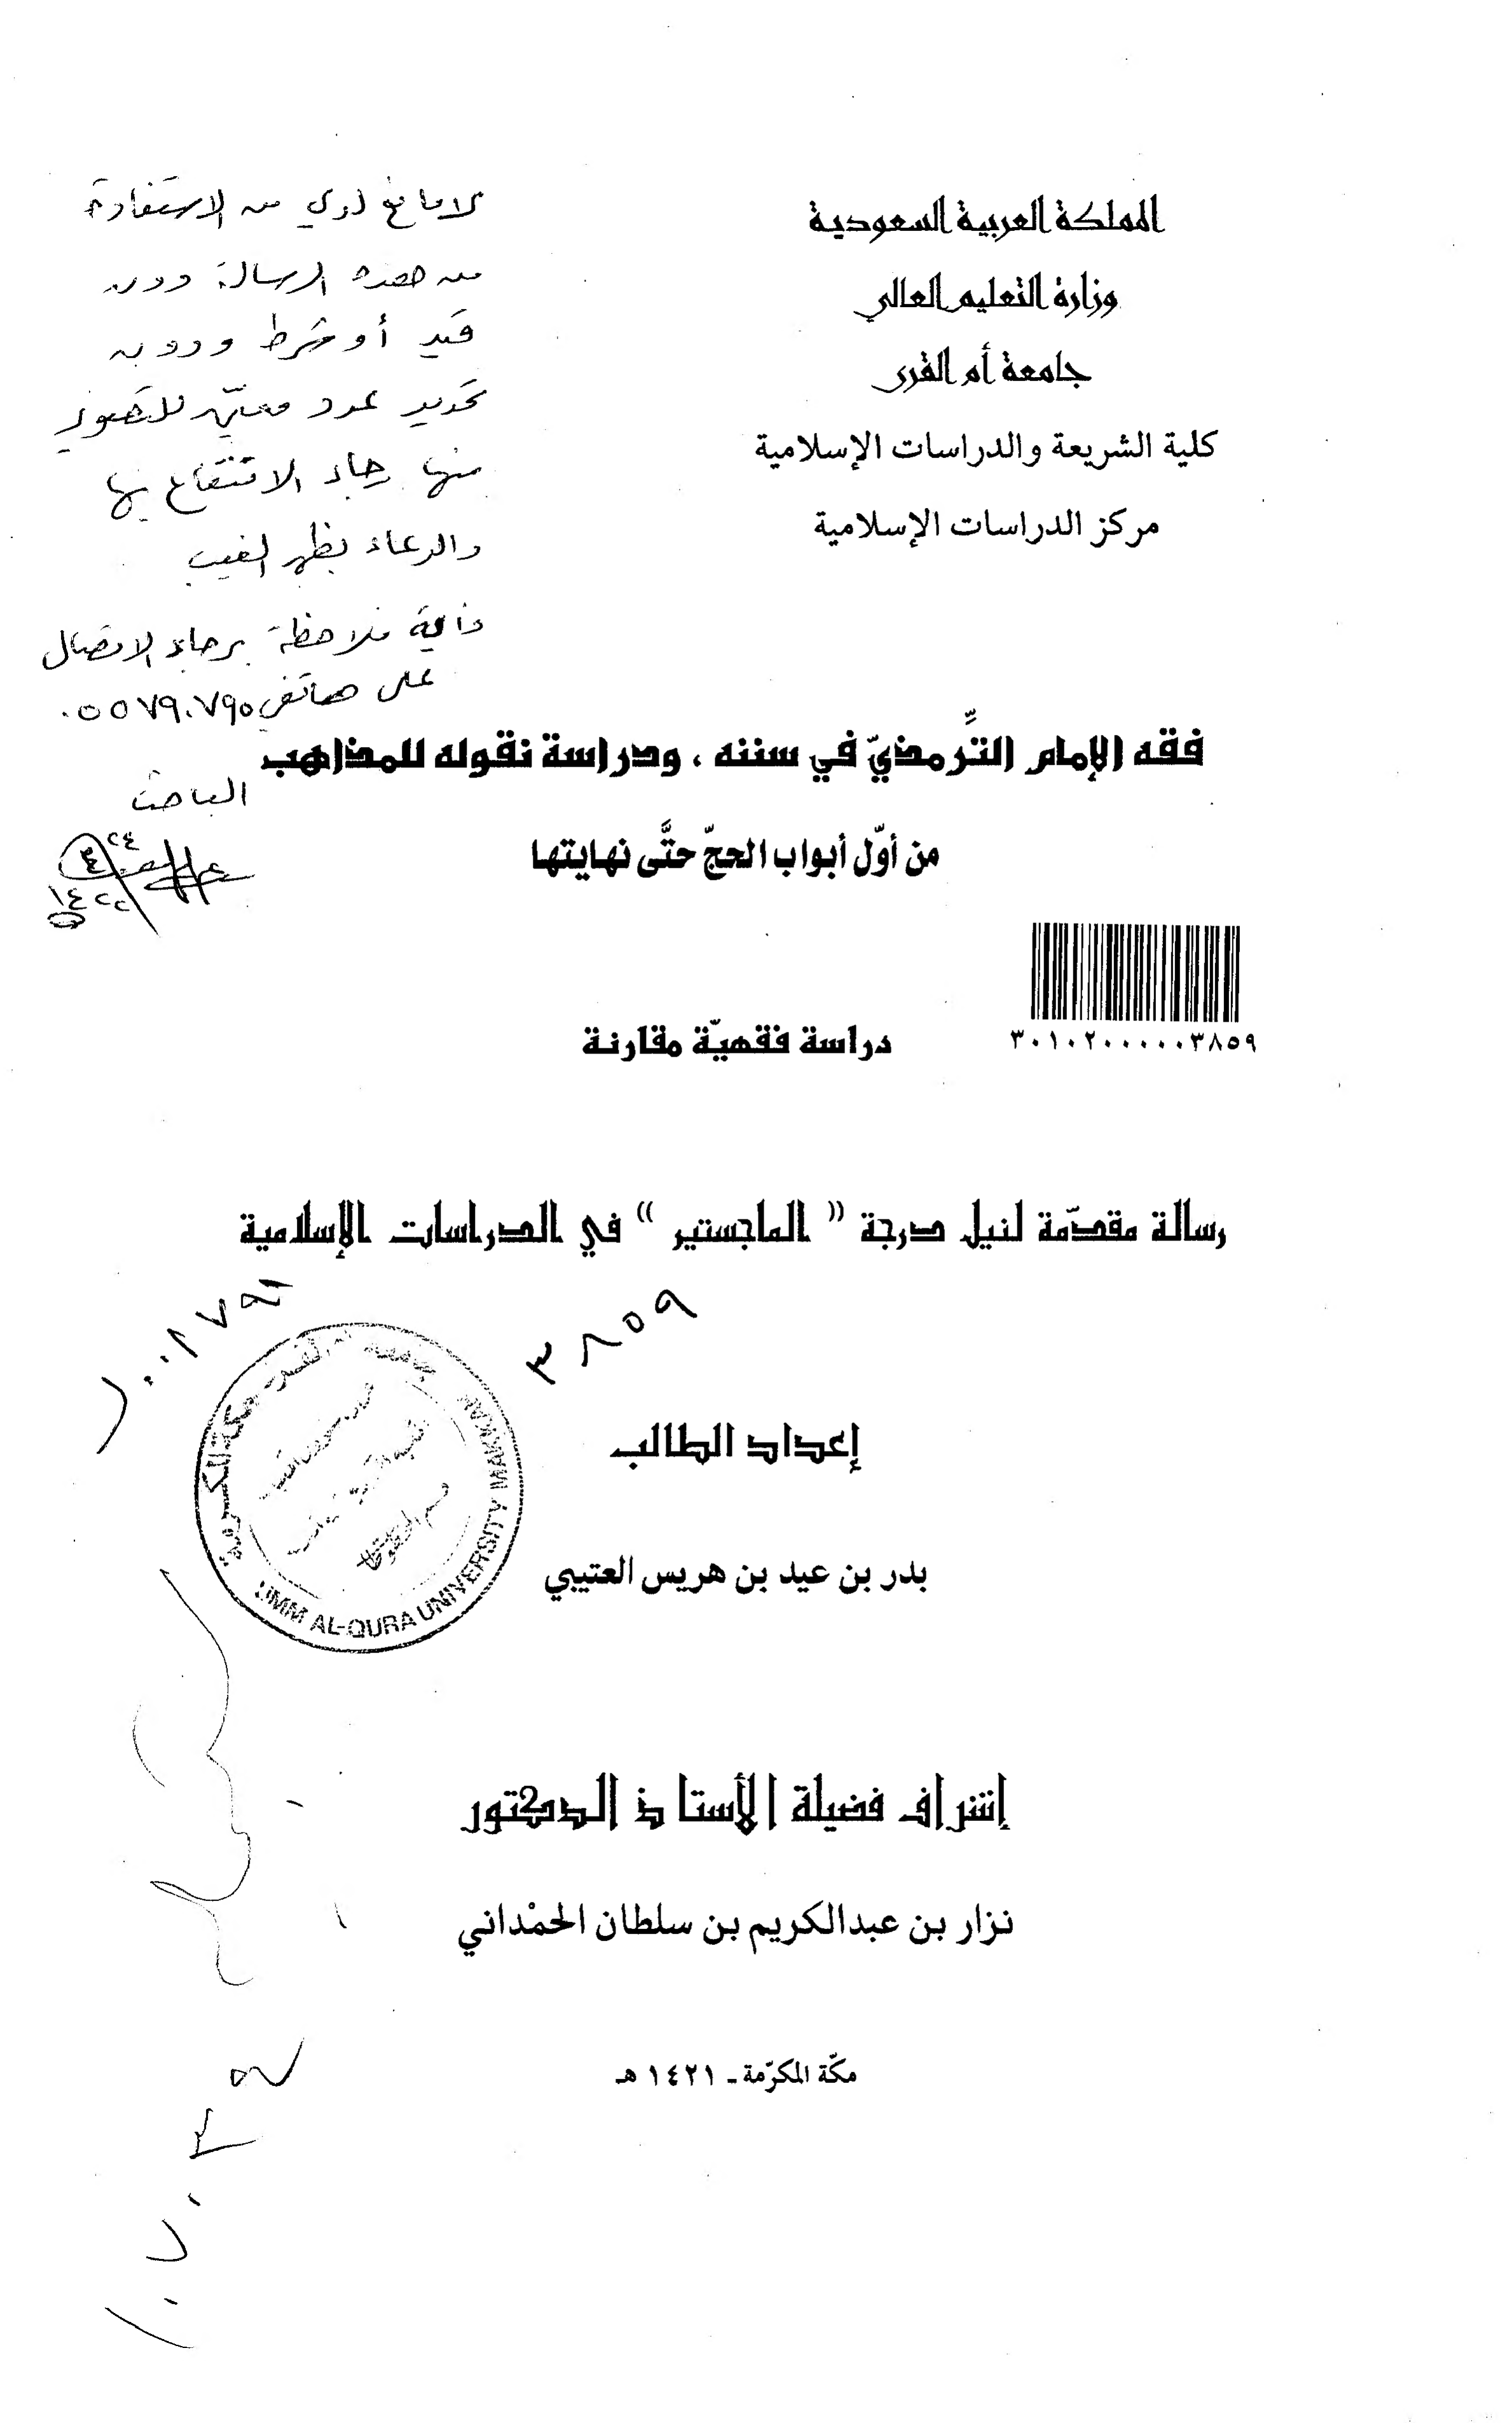 المملكة العربية السعودية
وزارة التعليم العالي
جامعة أم القرى
كلية الشريعة والدراسات الإسلامية
مركز الدراسات الإسلامية
لا مانع لدي من الاستفادة
من هذه الرسالة دون
قيد أو شرط ودون
تحديد عدد معيّن للتصوير
منها رجاء الانتفاع بها
والدعاء بظهر الغيب
وأية ملاحظة برجاء الاتصال
على هاتفي ٠٥٥٧٩٠٧٩٥
الباحث
٢٤
١٤٢٢
فقه الإمام التِّرمذيّ في سننه ، ودراسة نقوله للمذاهب
من أوّل أبواب الحجّ حتَّى نهايتها
٣٠١٠٢٠٠٠٠٠٣٨٥٩
دراسة فقهيّة مقارنة
رسالة مقدّمة لنيل درجة “ الماجستير ” في الدراسات الإسلامية
٣٨٥٩
جامعة أم القرى مكة المكرمة
UMM AL-QURA UNIVERSITY MAKKAH
إعداد الطالب
بدر بن عيد بن هريس العتيبي
إشراف فضيلة الأستاذ الدكتور
نزار بن عبدالكريم بن سلطان الحمْداني
مكّة المكرّمة ـ ١٤٢١ هـ